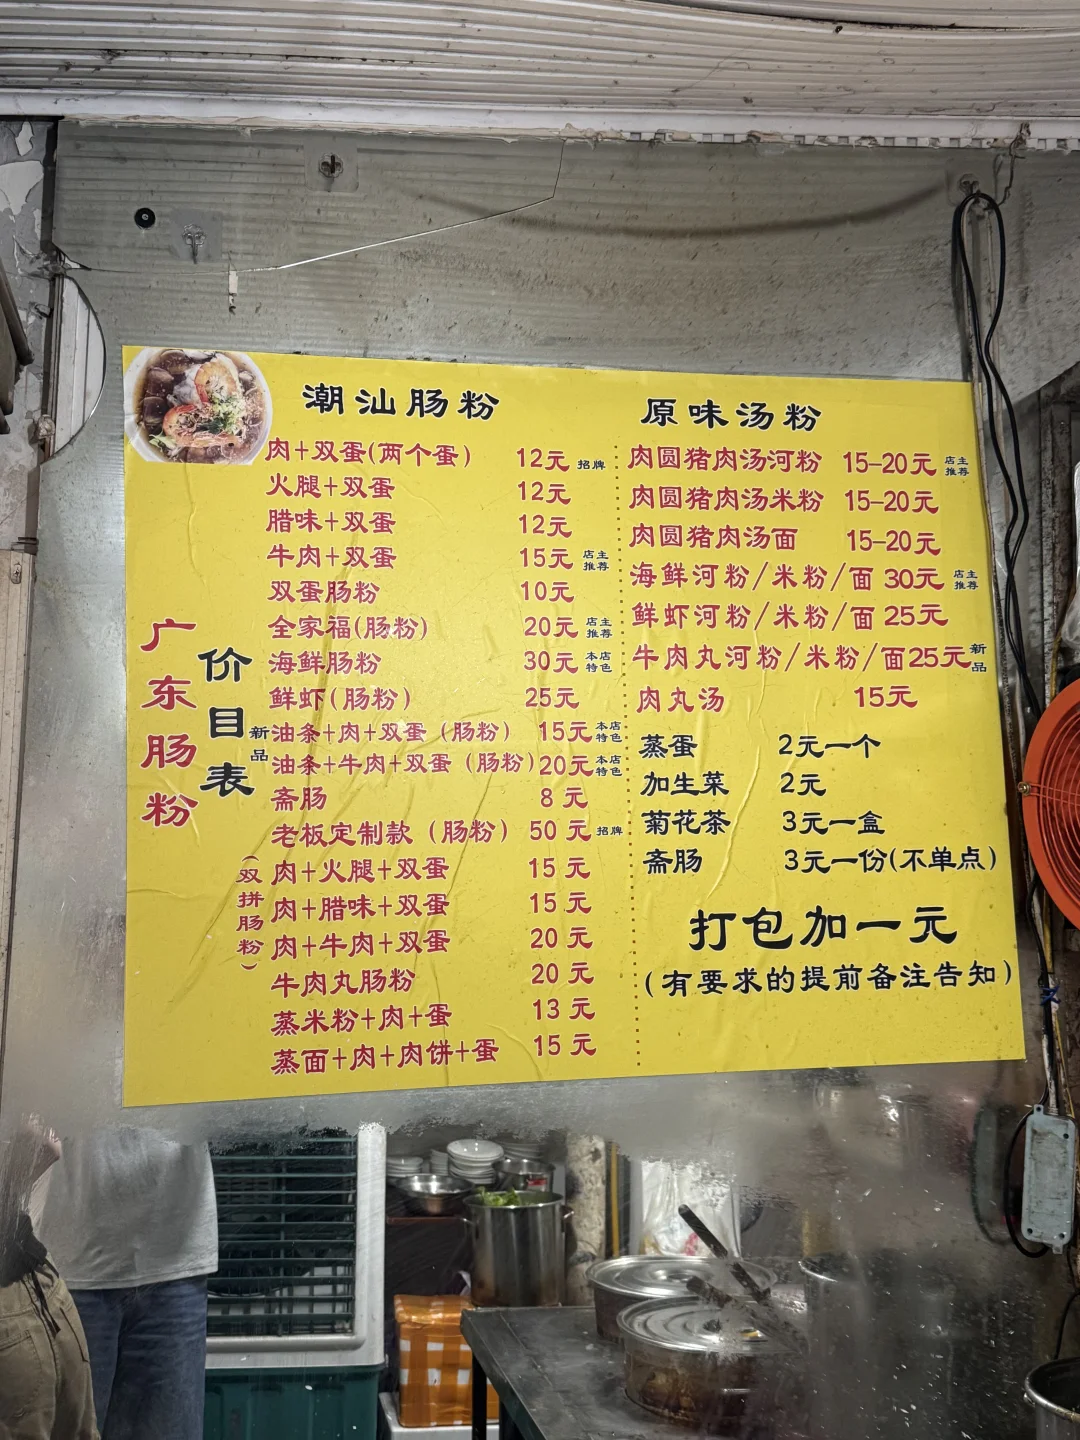 广东肠粉
价目表
潮汕肠粉
肉+双蛋(两个蛋) 12元 招牌
火腿+双蛋 12元
腊味+双蛋 12元
牛肉+双蛋 15元 店主推荐
双蛋肠粉 10元
全家福(肠粉) 20元 店主推荐
海鲜肠粉 30元 本店特色
鲜虾(肠粉) 25元
新品 油条+肉+双蛋(肠粉) 15元 本店特色
油条+牛肉+双蛋(肠粉) 20元 本店特色
斋肠 8元
老板定制款(肠粉) 50元 招牌
(双拼肠粉)
肉+火腿+双蛋 15元
肉+腊味+双蛋 15元
肉+牛肉+双蛋 20元
牛肉丸肠粉 20元
蒸米粉+肉+蛋 13元
蒸面+肉+肉饼+蛋 15元
原味汤粉
肉圆猪肉汤河粉 15-20元 店主推荐
肉圆猪肉汤米粉 15-20元
肉圆猪肉汤面 15-20元
海鲜河粉/米粉/面 30元 店主推荐
鲜虾河粉/米粉/面 25元
牛肉丸河粉/米粉/面 25元 新品
肉丸汤 15元
蒸蛋 2元一个
加生菜 2元
菊花茶 3元一盒
斋肠 3元一份(不单点)
打包加一元
(有要求的提前备注告知)